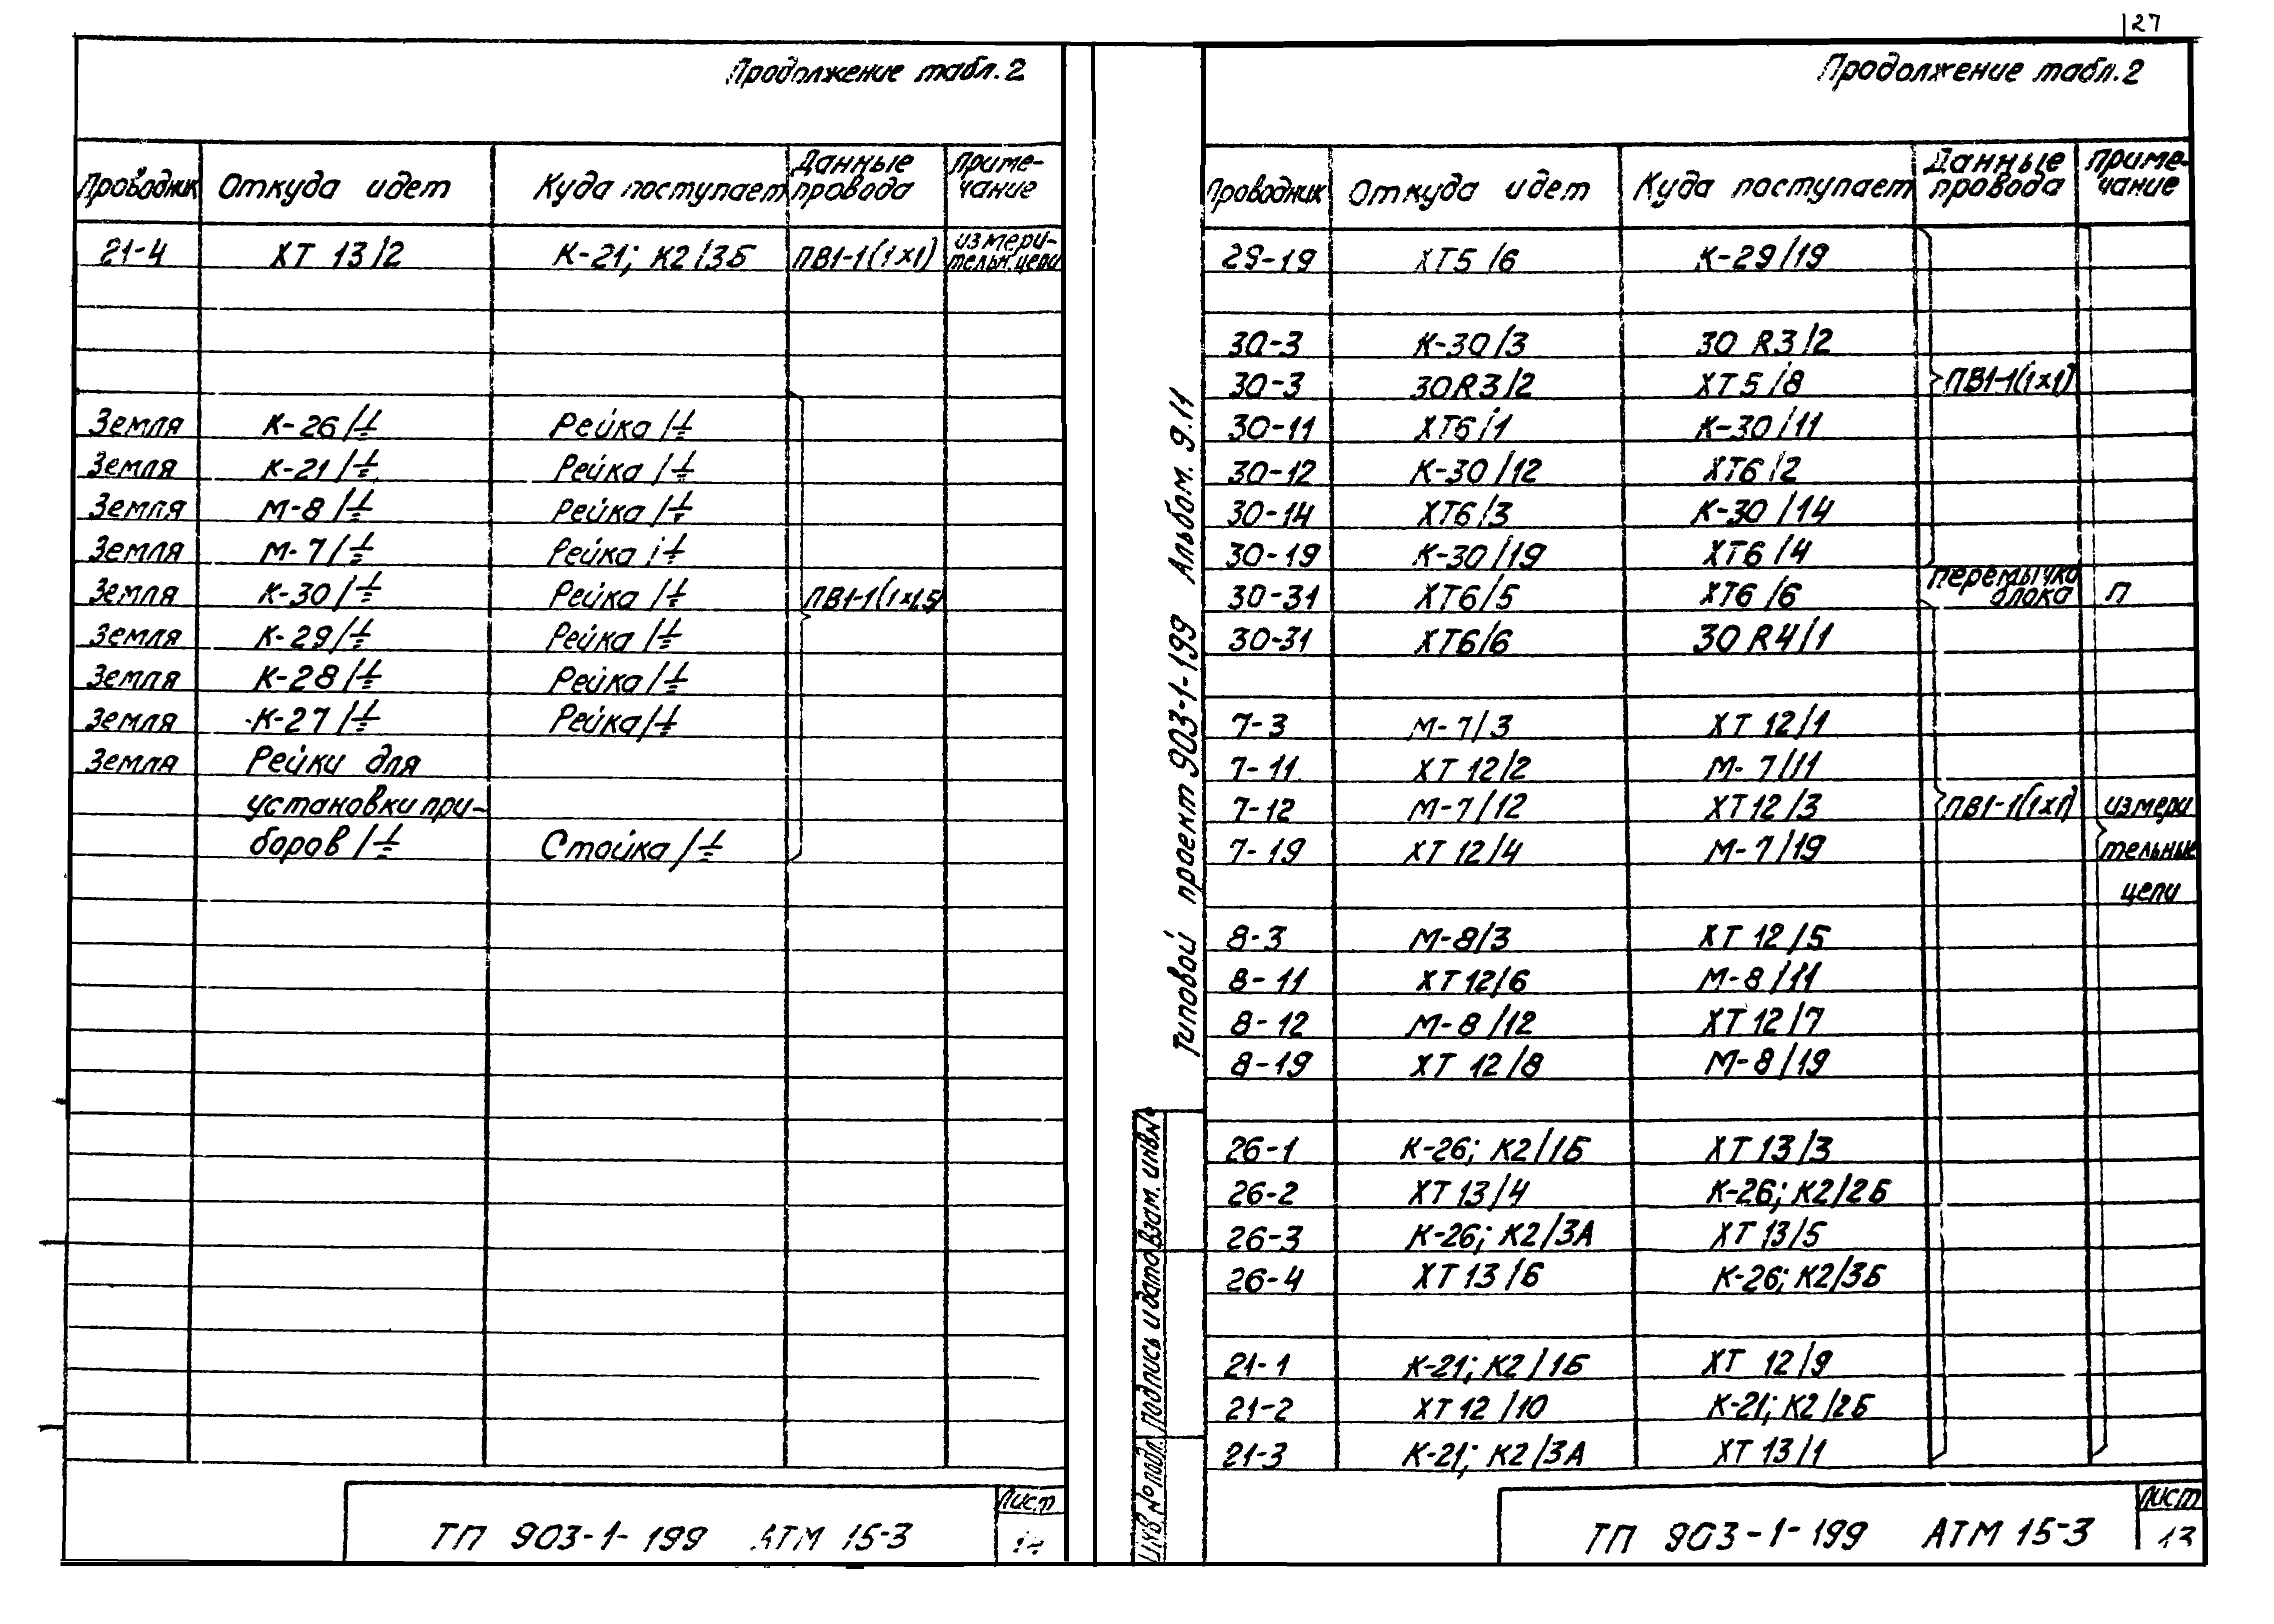 27
Продолжение табл.2
Проводник Откуда идет Куда поступает Данные провода Примечание
21-4 ХТ 13/2 К-21; К2/3Б ПВ1-1(1х1) измерительн. цепи
Земля К-26/⏚ Рейка/⏚
Земля К-21/⏚ Рейка/⏚
Земля М-8/⏚ Рейка/⏚
Земля М-7/⏚ Рейка/⏚
Земля К-30/⏚ Рейка/⏚ ПВ1-1(1х1,5)
Земля К-29/⏚ Рейка/⏚
Земля К-28/⏚ Рейка/⏚
Земля К-27/⏚ Рейка/⏚
Земля Рейки для
установки при-
боров/⏚ Стойка/⏚
ТП 903-1-199 АТМ 15-3
Лист
Типовой проект 903-1-199 Альбом. 9.11
Инв.№ подл. Подпись и дата Взам. инв.№
Продолжение табл.2
Проводник Откуда идет Куда поступает Данные провода Примечание
29-19 ХТ5/6 К-29/19
30-3 К-30/3 30R3/2
30-3 30R3/2 ХТ5/8 ПВ1-1(1х1)
30-11 ХТ6/1 К-30/11
30-12 К-30/12 ХТ6/2
30-14 ХТ6/3 К-30/14
30-19 К-30/19 ХТ6/4
30-31 ХТ6/5 ХТ6/6 перемычка блока П
30-31 ХТ6/6 30R4/1
7-3 М-7/3 ХТ 12/1
7-11 ХТ 12/2 М-7/11
7-12 М-7/12 ХТ12/3 ПВ1-1(1х1) измери
7-19 ХТ 12/4 М-7/19 тельные
цепи
8-3 М-8/3 ХТ 12/5
8-11 ХТ12/6 М-8/11
8-12 М-8/12 ХТ12/7
8-19 ХТ 12/8 М-8/19
26-1 К-26; К2/1Б ХТ13/3
26-2 ХТ13/4 К-26; К2/2Б
26-3 К-26; К2/3А ХТ13/5
26-4 ХТ13/6 К-26; К2/3Б
21-1 К-21; К2/1Б ХТ 12/9
21-2 ХТ12/10 К-21; К2/2Б
21-3 К-21; К2/3А ХТ13/1
ТП 903-1-199 АТМ 15-3
Лист
13